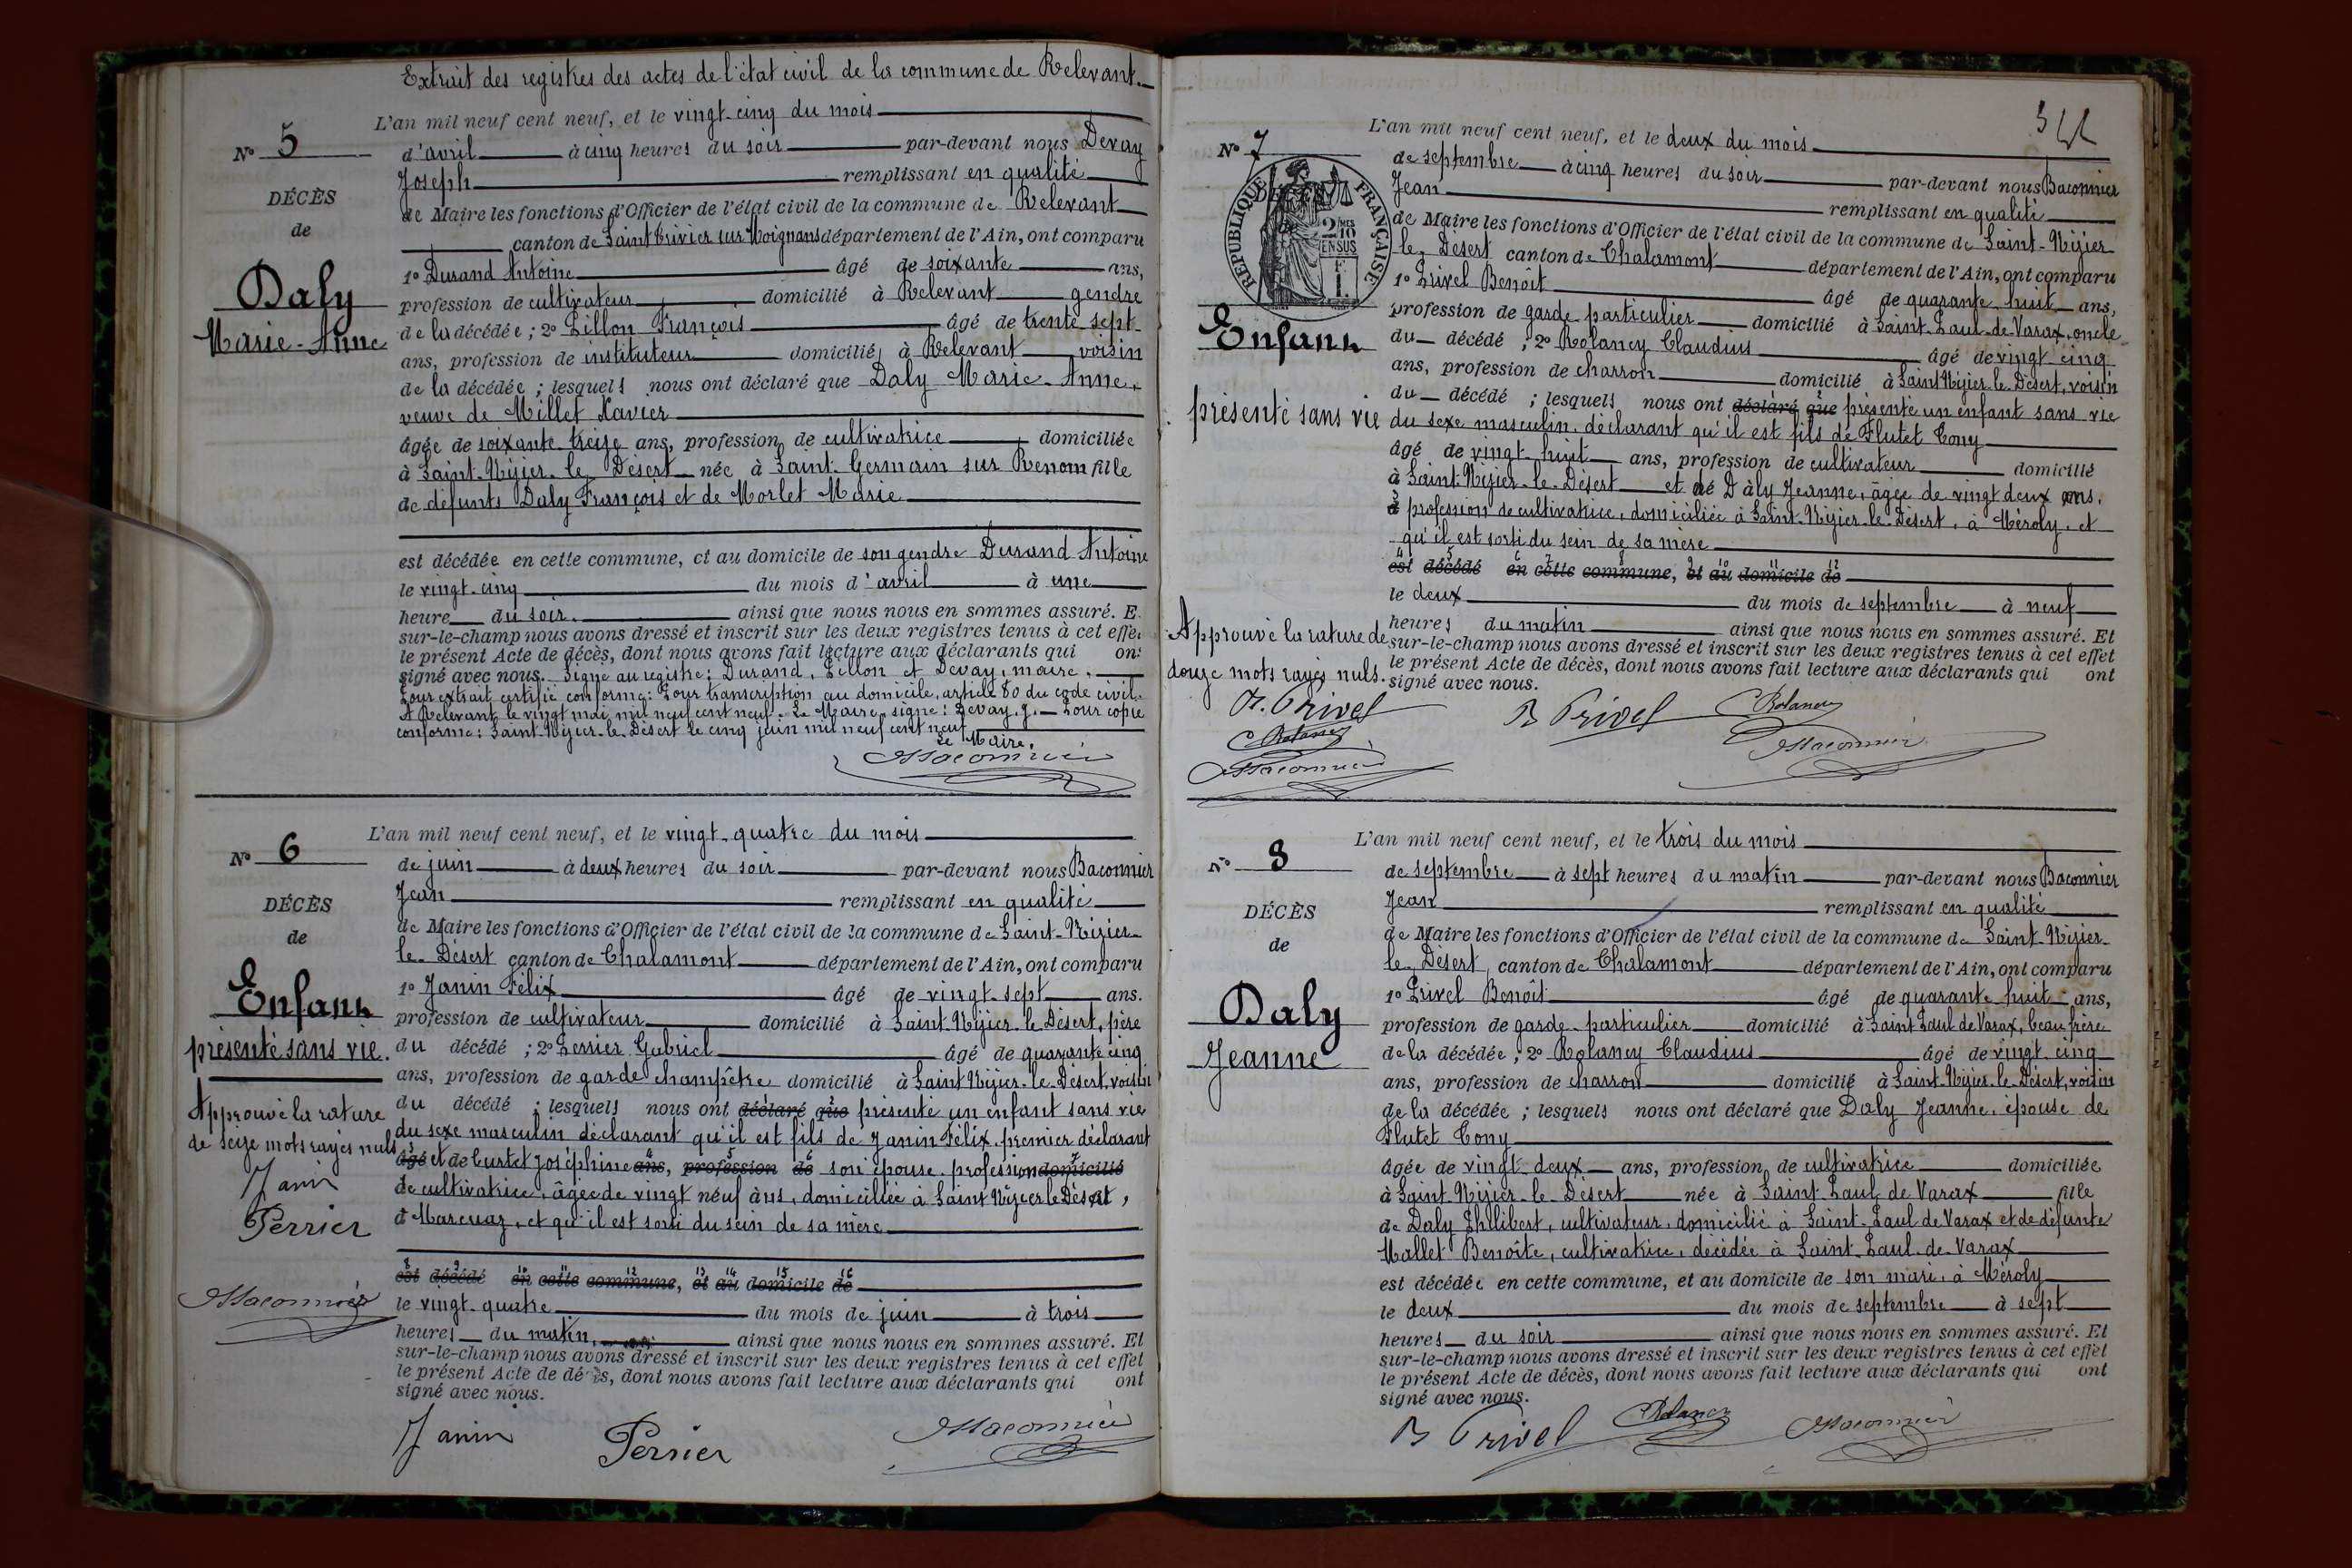 Extrait des registres des actes de l'état civil de la commune de Relevant.
N° 5
DÉCÈS
de
Daly
Marie-Anne
L'an mil neuf cent neuf, et le vingt-cinq du mois
d'avril à cinq heures du soir par-devant nous Devay
Joseph remplissant en qualité
de Maire les fonctions d'Officier de l'état civil de la commune de Relevant
canton de Saint Trivier sur Moignans département de l'Ain, ont comparu
1° Durand Antoine âgé de soixante ans,
profession de cultivateur domicilié à Relevant gendre
de la décédée ; 2° Pillon François âgé de trente-sept
ans, profession de instituteur domicilié à Relevant voisin
de la décédée ; lesquels nous ont déclaré que Daly Marie-Anne,
veuve de Millet Xavier
âgée de soixante-treize ans, profession de cultivatrice domiciliée
à Saint-Nizier-le-Désert née à Saint-Germain sur Renom fille
de défunts Daly François et de Morlet Marie
est décédée en cette commune, et au domicile de son gendre Durand Antoine
le vingt-cinq du mois d'avril à une
heure du soir. ainsi que nous nous en sommes assuré. E
sur-le-champ nous avons dressé et inscrit sur les deux registres tenus à cet effe
le présent Acte de décès, dont nous avons fait lecture aux déclarants qui on
signé avec nous. Signé au registre: Durand, Pillon et Devay, maire.
Pour extrait certifié conforme: Pour transcription au domicile, article 80 du code civil.
A Relevant le vingt mai mil neuf cent neuf. Le Maire, signé: Devay. J. — Pour copie
conforme: Saint-Nizier-le-Désert le cinq juin mil neuf cent neuf
Le Maire,
Baconnier
N° 6
DÉCÈS
de
Enfant
présenté sans vie.
Approuvé la rature
de seize mots rayés nuls
Janin
Perrier
Baconnier
L'an mil neuf cent neuf, et le vingt-quatre du mois
de juin à deux heures du soir par-devant nous Baconnier
Jean remplissant en qualité
de Maire les fonctions d'Officier de l'état civil de la commune de Saint-Nizier-
le-Désert canton de Chalamont département de l'Ain, ont comparu
1° Janin Félix âgé de vingt-sept ans.
profession de cultivateur domicilié à Saint-Nizier-le-Désert, père
du décédé ; 2° Perrier Gabriel âgé de quarante cinq
ans, profession de garde champêtre domicilié à Saint Nizier-le-Désert, voisin
du décédé ; lesquels nous ont déclaré que présenté un enfant sans vie
du sexe masculin déclarant qu'il est fils de Janin Félix, premier déclarant
âgé et de Curtet Joséphine ans, profession de son épouse profession domicilié
de cultivatrice, âgée de vingt neuf ans, domiciliée à Saint Nizier le Désert,
à Marcuaz, et qu'il est sorti du sein de sa mère
est décédé en cette commune, et au domicile de
le vingt-quatre du mois de juin à trois
heures du matin, ainsi que nous nous en sommes assuré. Et
sur-le-champ nous avons dressé et inscrit sur les deux registres tenus à cet effet
le présent Acte de décès, dont nous avons fait lecture aux déclarants qui ont
signé avec nous.
Janin Perrier Baconnier
N° 7
RÉPUBLIQUE FRANÇAISE
DÉCÈS
2/10 MES
EN SUS
F
1.
Enfant
présenté sans vie
Approuvé la rature de
douze mots rayés nuls.
B. Privel
C Rolancy
Baconnier
L'an mil neuf cent neuf, et le deux du mois
de septembre à cinq heures du soir par-devant nous Baconnier
Jean remplissant en qualité
de Maire les fonctions d'Officier de l'état civil de la commune de Saint-Nizier-
le-Désert canton de Chalamont département de l'Ain, ont comparu
1° Privel Benoît âgé de quarante huit ans,
profession de garde-particulier domicilié à Saint-Paul-de-Varax, oncle
du décédé ; 2° Rolancy Claudius âgé de vingt cinq
ans, profession de charron domicilié à Saint Nizier-le-Désert, voisin
du décédé ; lesquels nous ont déclaré que présenté un enfant sans vie
du sexe masculin, déclarant qu'il est fils de Flutet Tony
âgé de vingt-huit ans, profession de cultivateur domicilié
à Saint-Nizier-le-Désert et né Daly Jeanne, âgée de vingt deux ans,
à profession de cultivatrice, domiciliée à Saint-Nizier-le-Désert, à Méroly, et
qu'il est sorti du sein de sa mère
est décédé en cette commune, et au domicile de
le deux du mois de septembre à neuf
heures du matin ainsi que nous nous en sommes assuré. Et
sur-le-champ nous avons dressé et inscrit sur les deux registres tenus à cet effet
le présent Acte de décès, dont nous avons fait lecture aux déclarants qui ont
signé avec nous.
B Privel C Rolancy
Baconnier
N° 8
DÉCÈS
de
Daly
Jeanne
L'an mil neuf cent neuf, et le trois du mois
de septembre à sept heures du matin par-devant nous Baconnier
Jean remplissant en qualité
de Maire les fonctions d'Officier de l'état civil de la commune de Saint-Nizier-
le-Désert, canton de Chalamont département de l'Ain, ont comparu
1° Privel Benoît âgé de quarante-huit ans,
profession de garde-particulier domicilié à Saint Paul de Varax, beau frère
de la décédée ; 2° Rolancy Claudius âgé de vingt-cinq
ans, profession de charron domicilié à Saint-Nizier-le-Désert, voisin
de la décédée ; lesquels nous ont déclaré que Daly Jeanne, épouse de
Flutet Tony
âgée de vingt-deux ans, profession de cultivatrice domiciliée
à Saint-Nizier-le-Désert née à Saint-Paul de Varax fille
de Daly Philibert, cultivateur, domicilié à Saint-Paul de Varax et de défunte
Mallet Benoîte, cultivatrice, décédée à Saint-Paul-de-Varax
est décédée en cette commune, et au domicile de son mari, à Méroly
le deux du mois de septembre à sept
heures du soir ainsi que nous nous en sommes assuré. Et
sur-le-champ nous avons dressé et inscrit sur les deux registres tenus à cet effet
le présent Acte de décès, dont nous avons fait lecture aux déclarants qui ont
signé avec nous.
B Privel C Rolancy Baconnier